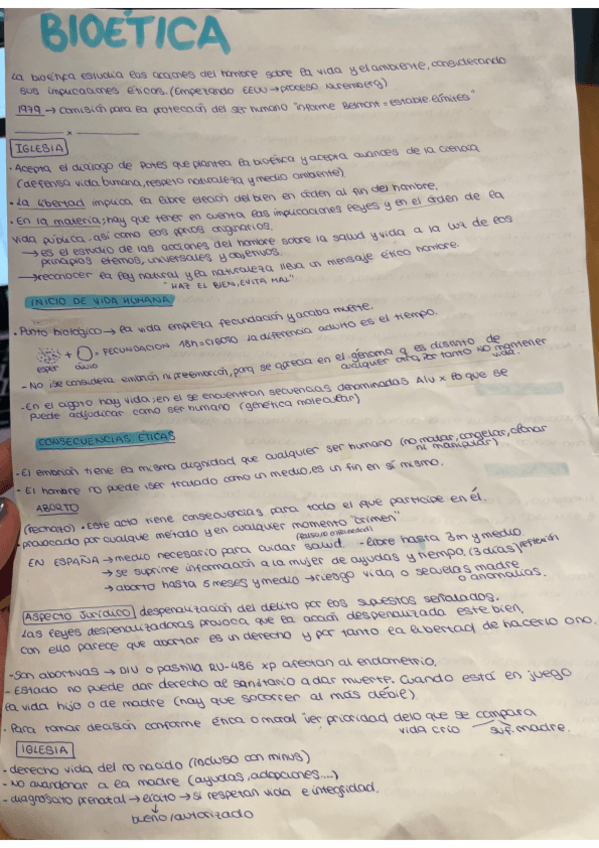 BIOÉTICA
La bioética estudia las acciones del hombre sobre la vida y el ambiente, considerando
sus implicaciones éticas. (Empezando EEUU → proceso Nuremberg)
1979 → Comisión para la protección del ser humano "informe Belmont = estable. límites"
x
IGLESIA
· Acepta el diálogo de Potes que plantea la bioética y acepta avances de la ciencia
(defensa vida humana, respeto naturaleza y medio ambiente)
· La libertad implica la libre elección del bien en orden al fin del hombre.
· En la materia; hay que tener en cuenta las implicaciones leyes y en el orden de la
vida pública. así como los ppios originarios.
→ es el estudio de las acciones del hombre sobre la salud y vida a la luz de los
principios eternos, universales y objetivos.
→ reconocer la ley natural y la naturaleza lleva un mensaje ético hombre.
"HAZ EL BIEN, EVITA MAL"
INICIO DE VIDA HUMANA
· Punto biológico → la vida empieza fecundación y acaba muerte.
+ = FECUNDACIÓN 18h = CIGOTO la diferencia adulto es el tiempo.
esper óvulo
- NO se considera embrión ni preembrión, porq se aprecia en el genoma q es distinto de
cualquier otro, por tanto NO mantener
vida.
- En el cigoto hay vida; en el se encuentran secuencias denominadas Alu x lo que se
puede adjudicar como ser humano (genética molecular)
CONSECUENCIAS ÉTICAS
- El embrión tiene la misma dignidad que cualquier ser humano (no matar, congelar, clonar
ni manipular)
- El hombre no puede ser tratado como un medio, es un fin en sí mismo.
ABORTO
(rechazo) · Este acto tiene consecuencias para todo el que participe en él.
- provocado por cualquie método y en cualquier momento "crimen"
EN ESPAÑA → medio necesario para cuidar salud. - libre hasta 3m y medio
→ se suprime información a la mujer de ayudas y tiempo. (3 días) reflexión
→ aborto hasta 5 meses y medio → riesgo vida o secuelas madre
o anomalías.
Aspecto Jurídico despenalización del delito por los supuestos señalados.
Las leyes despenalizadoras provoca que la acción despenalizada este bien,
con ello parece que abortar es un derecho y por tanto la libertad de hacerlo o no.
- Son abortivas → DIU o pastilla RU-486 xp afectan al endometrio.
- Estado no puede dar derecho al sanitario a dar muerte. Cuando está en juego
la vida hijo o de madre (hay que socorrer al más débil)
· Para tomar decisión conforme ética o moral ver prioridad de lo que se compara
vida crio suf. madre.
IGLESIA
· derecho vida del no nacido (incluso con minus)
- No abandonar a la madre (ayudas, adopciones....)
- diagnostico prenatal → lícito → si respetan vida e integridad.
bueno/autorizado